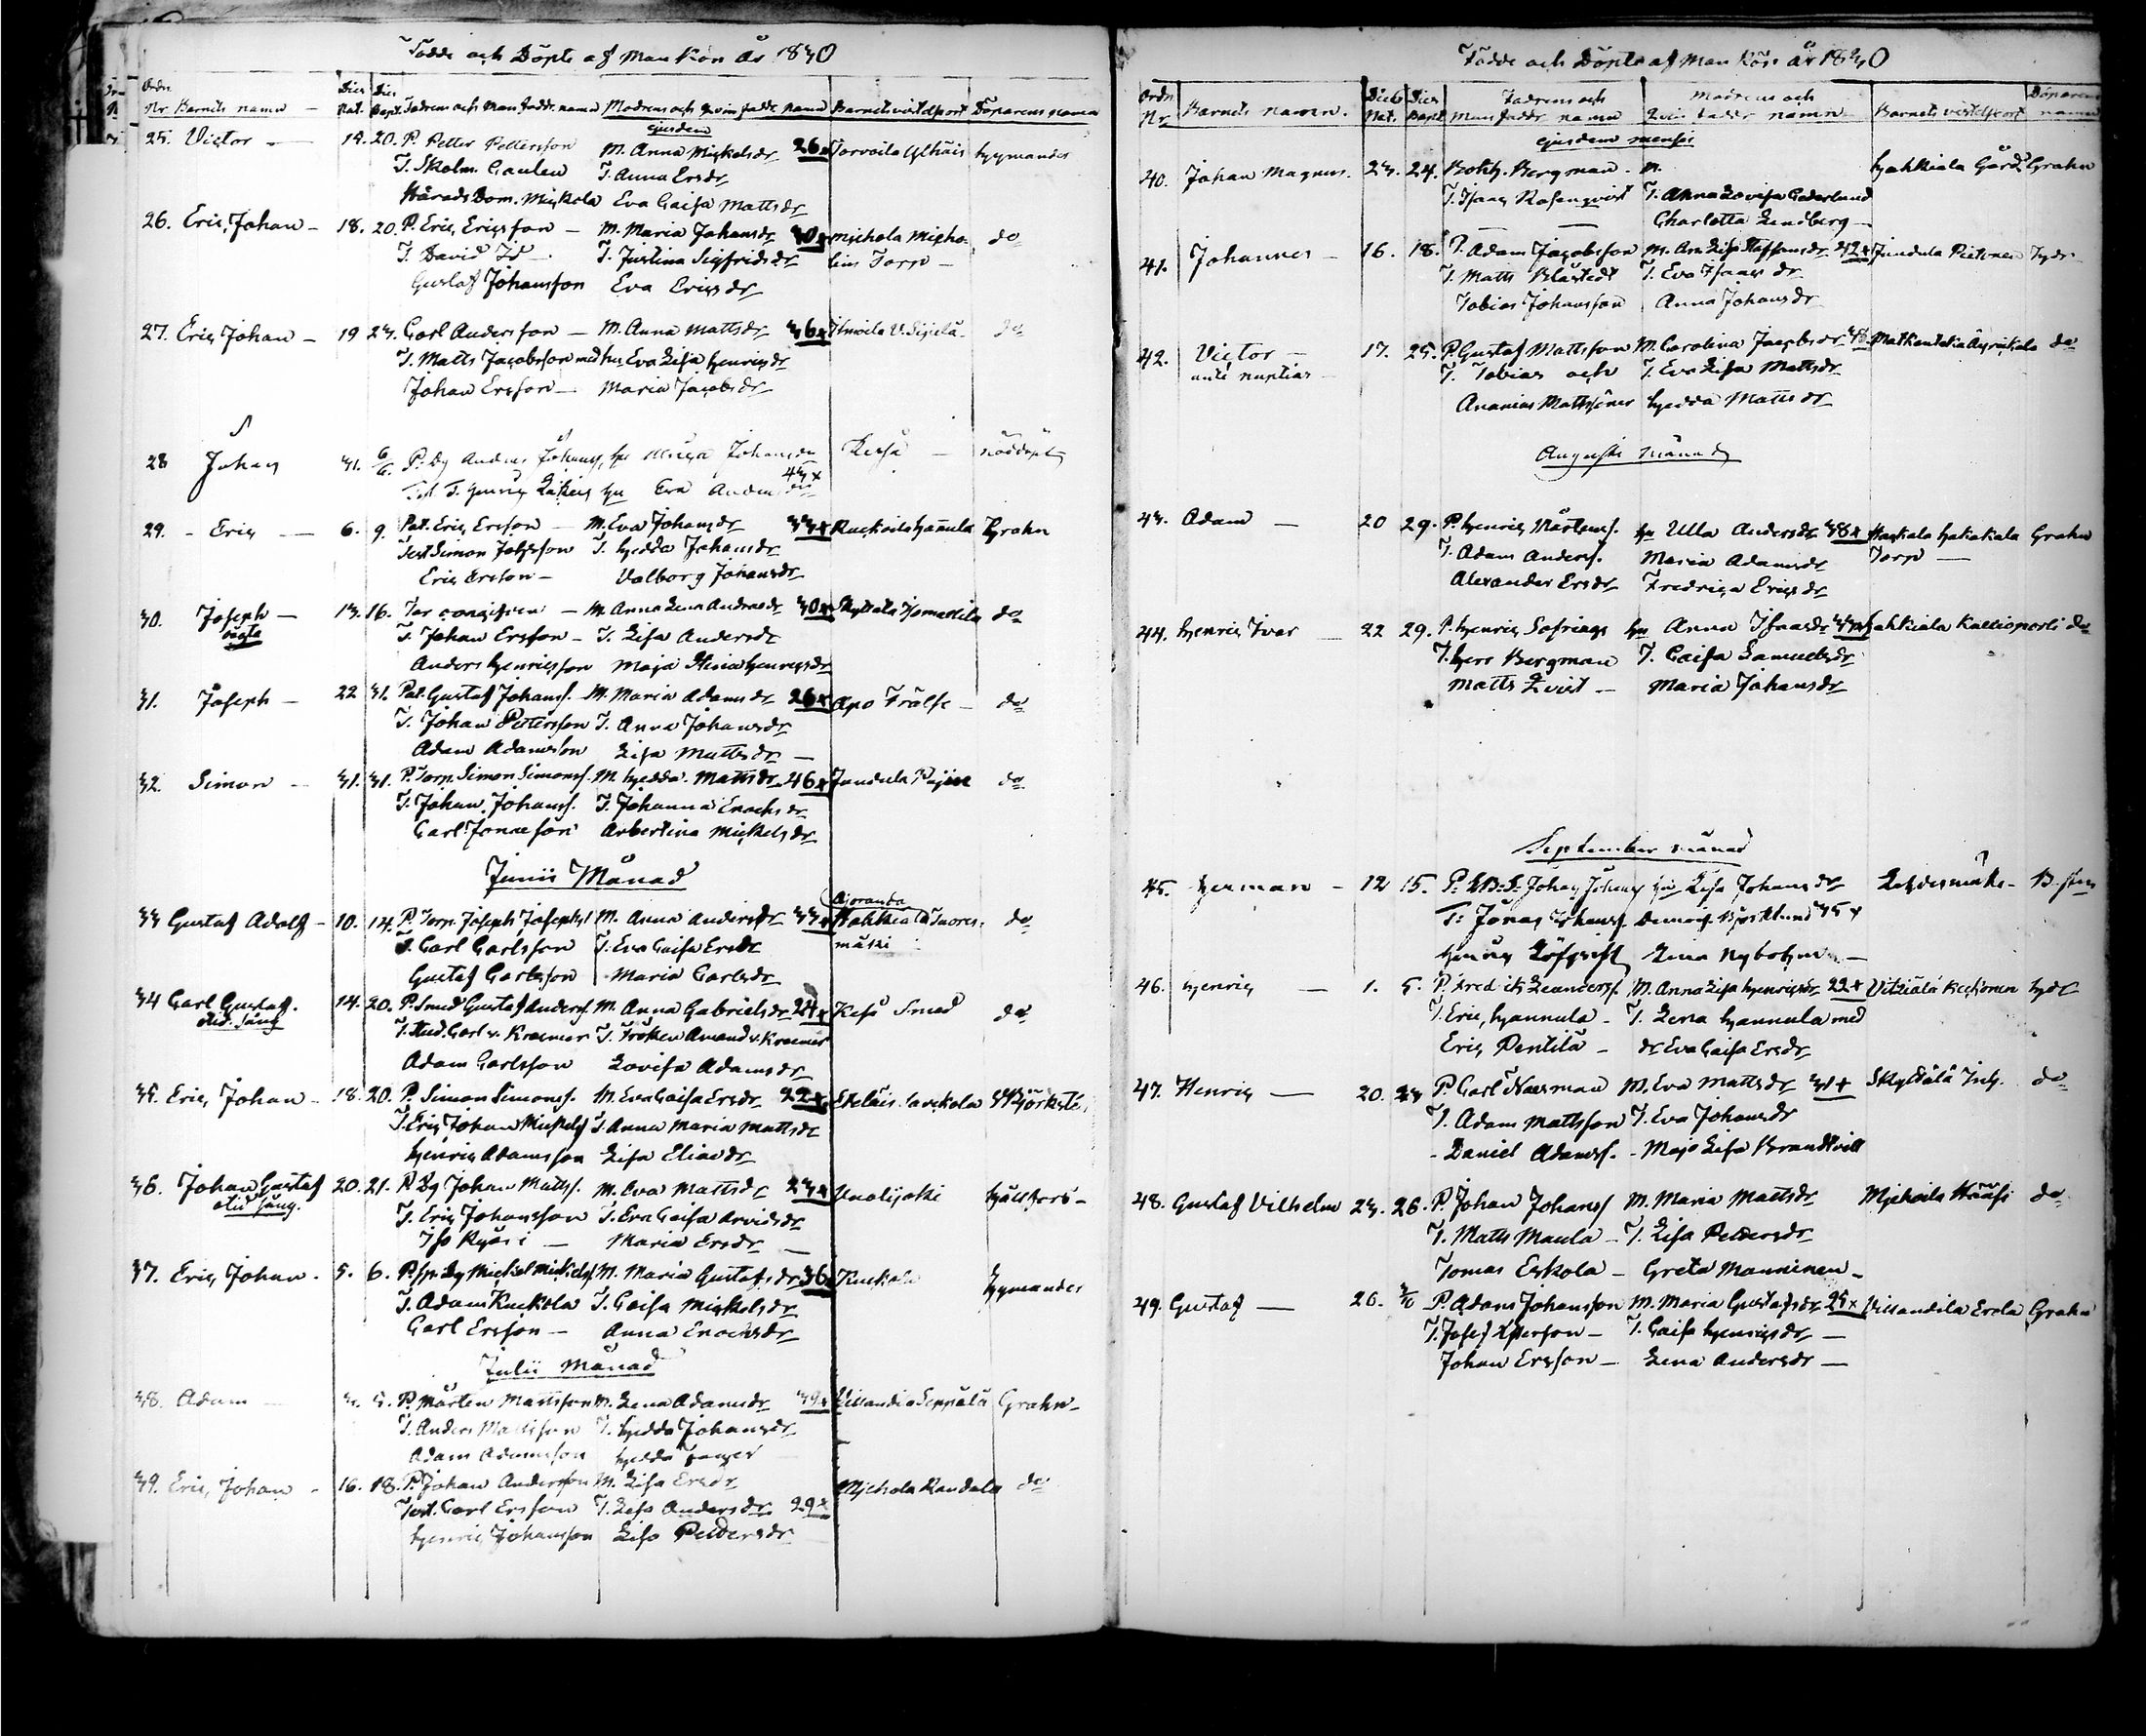 Födde och Döpte af Man Kön År 1830
Ordn. Nr. Barnets namn Dies Nat. Dies Bapt. Fadrens och Man fadd. namn Modrens och qvin fadd. namn Barnets vistelseort Döparens namn
ejusdem
25. Victor — 19. 20. P. Petter Pettersson M. Anna Mickelsdr 26 Torvoila Ylhäis Hymander
T. Skolm. Caulen T. Anna Ersdr
Härads Dom. Mickola Eva Caisa Mattsdr
26. Eric Johan — 18. 20. P. Eric Ericsson — M. Maria Johansdr 30 Michola Micho- do
T. David Id — T. Justina Sigfridsdr lin Torp —
Gustaf Johansson Eva Ericsdr
27. Eric Johan — 19 23. Carl Andersson — M. Anna Mattsdr 36 do
T. Matts Jacobsson med hu Eva Lisa Henricsdr
Johan Ersson — Maria Jacobsdr
28 Johan 31. 6/6. P. Bg Anders Johans. hu Johansdr — nöddöpt
43
T. hu Eva Andersdr
29. Eric — 6. 9. Pat. Eric Ersson — M. Eva Johansdr 33 Ruckoila Hannula Grahn
Test Simon T. Hedda Johansdr
Eric Ersson — Valborg Johansdr
30. Joseph — 13. 16. — M. Anna Lena Andersdr 30 do
oägta T. Johan Ersson — T. Lisa Andersdr
Anders Henricsson Maja Stina Henricsdr
31. Joseph — 22 31. Pat. Gustaf Johanss. M. Maria Adamsdr 26 Apo Frälse — do
T. Johan Pettersson T. Anna Johansdr
Adam Adamsson Lisa Mattsdr —
32. Simon — 31. 31. P. Torp. Simon Simonss. M. Hedda Mattsdr 26 do
T. Johan Johanss. T. Johanna Enochsdr
Carl Jonasson Arbertina Mickelsdr
Junii Månad
Ajoranda
33 Gustaf Adolf — 10. 14. P. Torp. Joseph Josephss. M. Anna Andersdr 33 Hahkiala Juores- do
T. Carl Carlsson T. Eva Caisa Ersdr mäki
Gustaf Carlsson Maria Carlsdr
34 Carl Gustaf. 14. 20. P. Smed Gustaf Anderss. M. Anna Gabrielsdr 24 Kesi Smed do
oäd. säng T. Stud. Carl v. Kraemer T. Fröken Amand v. Kraemer
Adam Carlsson Lovisa Adamsdr
35. Eric Johan — 18. 20. P. Simon Simonss. M. Eva Caisa Ersdr 22 Etelais
T. Eric Johan Mickelss T. Anna Maria Mattsdr
Henric Adamsson Lisa Eliaedr
36. Johan Gustaf 20. 21. P Bg Johan Matss. M. Eva Mattsdr 23 Hällfors —
oäd säng. T. Eric Johansson T. Eva Caisa Arvidsdr
— Maria Ersdr —
37. Eric Johan. 5. 6. P. Sp. Bg Mickel Mickelss. M. Maria Gustafsdr 36 Kuckola Hymander
T. Adam Kuckola T. Caisa Mickelsdr
Carl Ersson — Anna Enochsdr
Julii Månad
38. Adam — 3. 5. P. Mårten Mattsson M. Lena Adamsdr 39 Viiandila Seppälä Grahn —
T. Anders Mattsson T. Hedda Johansdr
Adam Adamsson Hedda
39. Eric Johan — 16. 18. P. Johan Andersson M. Lisa Ersdr Michola Kandala do
Test. Carl Ersson T. Lisa Andersdr 29
Henric Johansson Lisa Pettersdr
Födde och Döpte af Man Kön År 1830
Ordn Nr Barnets namn. Dies Nat. Dies Bapt Fadrens och Man faddr namn Modrens och Qvin faddr namn Barnets vistelseort Döparens namn
ejusdem mensis
40. Johan Magnus. 23. 24. Bokh. Bergman. M. Hahkiala Gård Grahn
T. Isaac Rosenqvist T. Anna Lovisa Cederlund
— — Charlotta Lindberg —
41. Johannes — 16. 18. P. Adam Jacobsson M. Ann Lisa Staffansdr 42 Jundula Pietonen Hydr
T. Matts Blåstedt T. Eva Isaacsdr
Tobias Johansson Anna Johansdr
42. Victor — 17. 25. P. Gustaf Mattsson M. Carolina Jacobsdr 38 do
ante nuptias — T. Tobias och T. Eva Lisa Mattsdr
Ananias Mattssöner Hedda Mattsdr
Augusti Månad
43. Adam — 20 29. P. Henric Mårtenss. hu Ulla Andersdr 38 Hackala Grahn
T. Adam Anderss. Maria Adamsdr Torp —
Alexander Ersdr Fredrica Ericsdr
44. Henric Ivar — 22 29. P. Henric hu Anna Isaacsdr Hahkiala Kalliosporti do
T. Herr Bergman T. Caisa Samuelsdr
Matts Qvist — Maria Johansdr
September månad
45. Herman — 12 15. P: Johan Johanss hu Lisa Johansdr
T: Jonas Johanss. Björklund 35
Henric Löfqvist Lena Nyholm —
46. Henric — 1. 5. P. Fredrik Leanderss. M. Anna Lisa Henricsdr 22 Vitziälä Keckonen Hydr
T. Eric Hannula — T. Lena Hannula med
Eric Pentilä — dr Eva Caisa Ersdr
47. Henric — 20. 23 P. Carl Norrman M. Eva Mattsdr 31 Skyttälä Inh. do
T. Adam Mattsson T. Eva Johansdr
Daniel Adamss. — Maja Lisa Brandtvill
48. Gustaf Vilhelm 23. 26. P. Johan Johanss M. Maria Mattsdr Michoila do
T. Matts Maula — T. Lisa Pettersdr
Tomas Erkola — Greta Manninen —
49. Gustaf — 26. P. Adam Johansson M. Maria Gustafsdr 25 Viiandila Erola Grahn
T. Josef — T. Caisa Henricsdr —
Johan Ersson — Lena Andersdr —